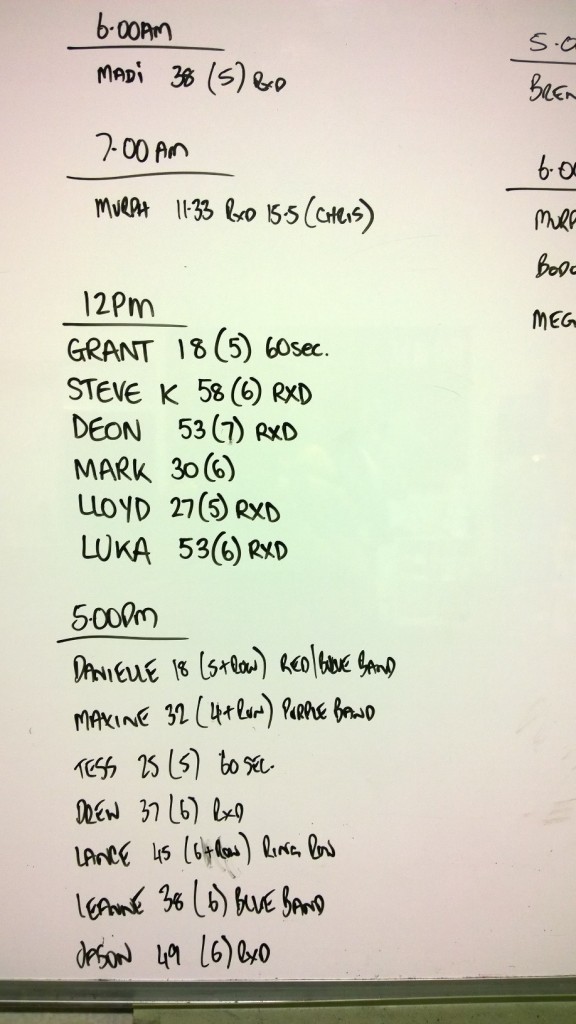 6.00AM
MADi 38 (5) RxD
7.00 AM
MURPH 11.33 RxD 15.5 (CHRIS)
12PM
GRANT 18 (5) 60sec.
STEVE K 58 (6) RXD
DEON 53 (7) RXD
MARK 30 (6)
LLOYD 27 (5) RXD
LUKA 53 (6) RXD
5.00PM
DANIELLE 18 (5+ROW) RED/BLUE BAND
MAXINE 32 (4+RUN) PURPLE BAND
TESS 25 (5) 60 SEC.
DREW 37 (6) RxD
LANCE 45 (6+ROW) RING ROW
LEANNE 38 (6) BLUE BAND
JASON 49 (6) RXD
5.0
BREN
6.00
MURP
BODO
MEG